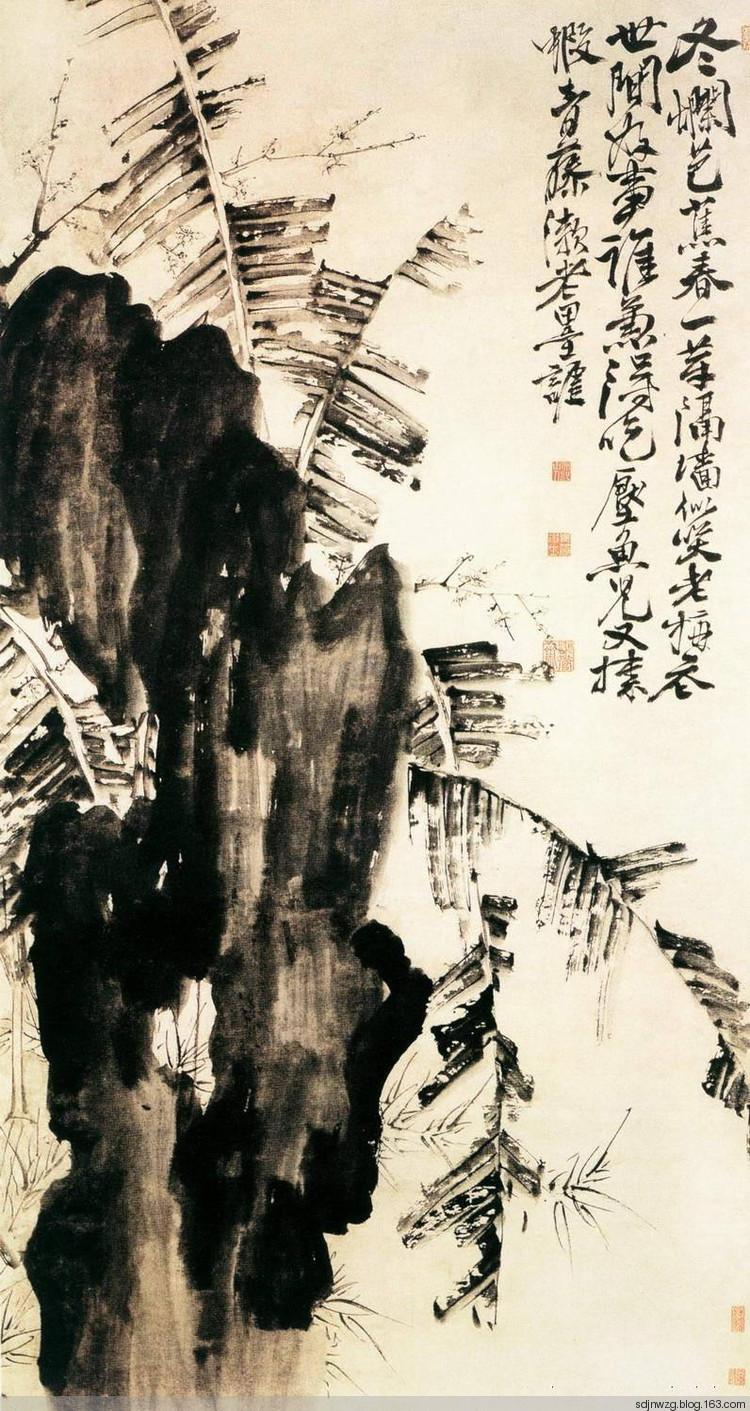 冬爛芭蕉春一芽隔墻似笑老梅花
世間好事誰兼得吃厭魚兒又揀
蝦青藤漱老墨謔
sdjnwzg.blog.163.com